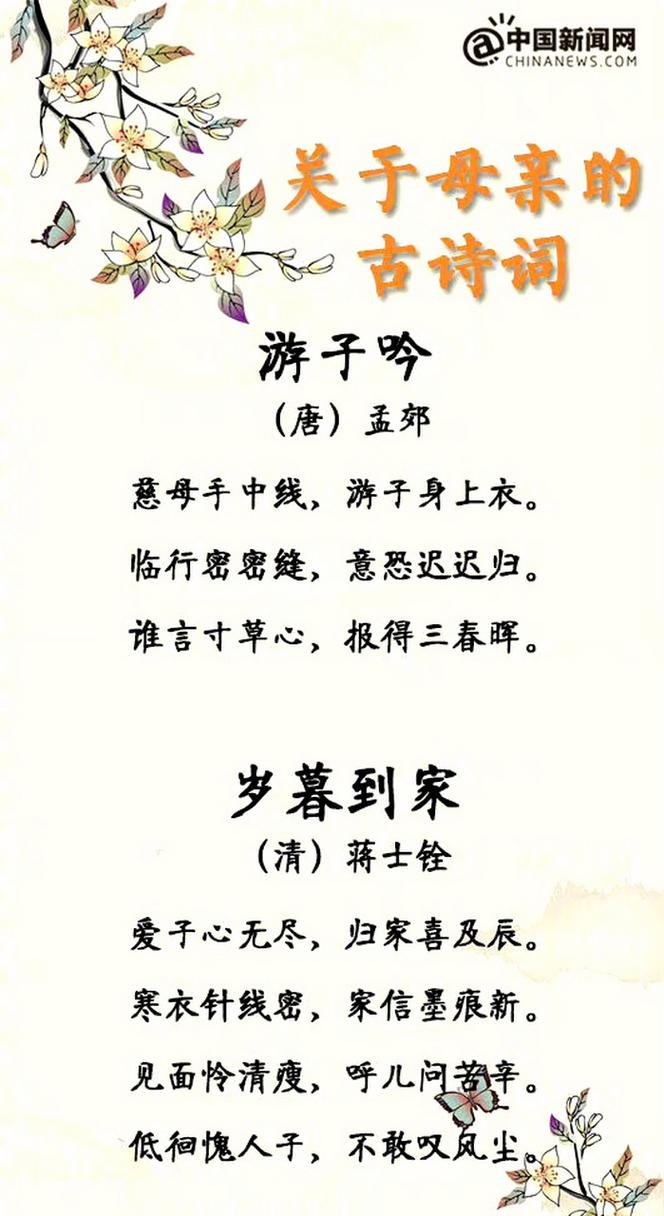 @中国新闻网
CHINANEWS.COM
关于母亲的
古诗词
游子吟
（唐）孟郊
慈母手中线，游子身上衣。
临行密密缝，意恐迟迟归。
谁言寸草心，报得三春晖。
岁暮到家
（清）蒋士铨
爱子心无尽，归家喜及辰。
寒衣针线密，家信墨痕新。
见面怜清瘦，呼儿问苦辛。
低徊愧人子，不敢叹风尘。